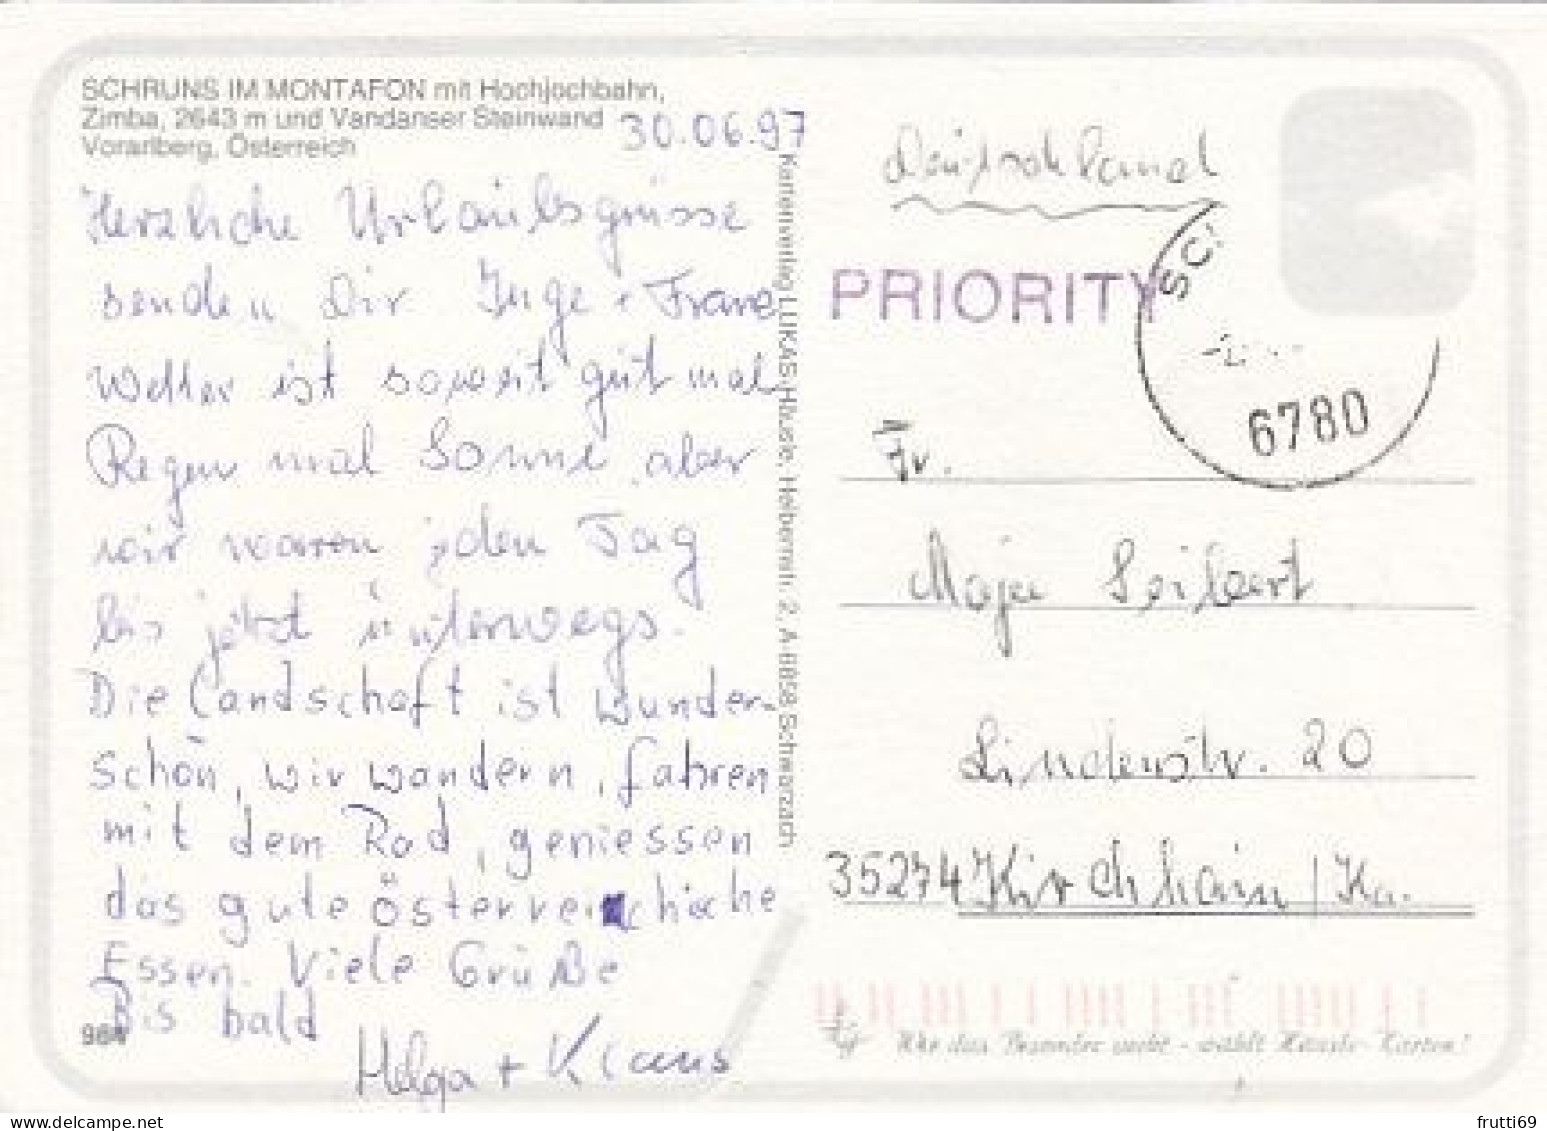 SCHRUNS IM MONTAFON mit Hochjochbahn,
Zimba, 2643 m und Vandanser Steinwand
Vorarlberg, Österreich
30.06.97
Herzliche Urlaubsgrüsse
senden Dir Inge + Franz
Wetter ist soweit gut mal
Regen mal Sonne, aber
wir waren jeden Tag
bis jetzt unterwegs.
Die Landschaft ist wunder-
schön, wir wandern, fahren
mit dem Rad, geniessen
das gute österreichische
Essen. Viele Grüße
Bis bald
Helga + Klaus
964
Kartenverlag LUKAS Häusle, 2, A-6858 Schwarzach
Deutschland
PRIORITY
SC
6780
Fr.
Maja Seibert
Lindenstr. 20
35274 Kirchhain / Ka.
Wer das Besondere sucht - wählt Häusle-Karten!
frutti69